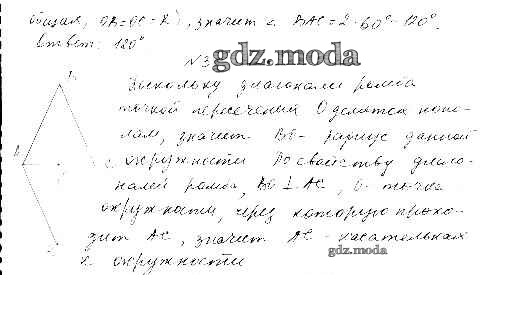 общая, OB=OC=R), значит ∠ BAC=2·60°=120°.
Ответ: 120°
N3
gdz.moda
Поскольку диагонали ромба
точкой пересечения О делятся попо-
лам, значит ВО - радиус данной
окружности По свойству диаго-
налей ромба, ВО ⊥ АС, О - точка
окружности, через которую прохо-
дит АС, значит АС - касательная
к окружности
gdz.moda